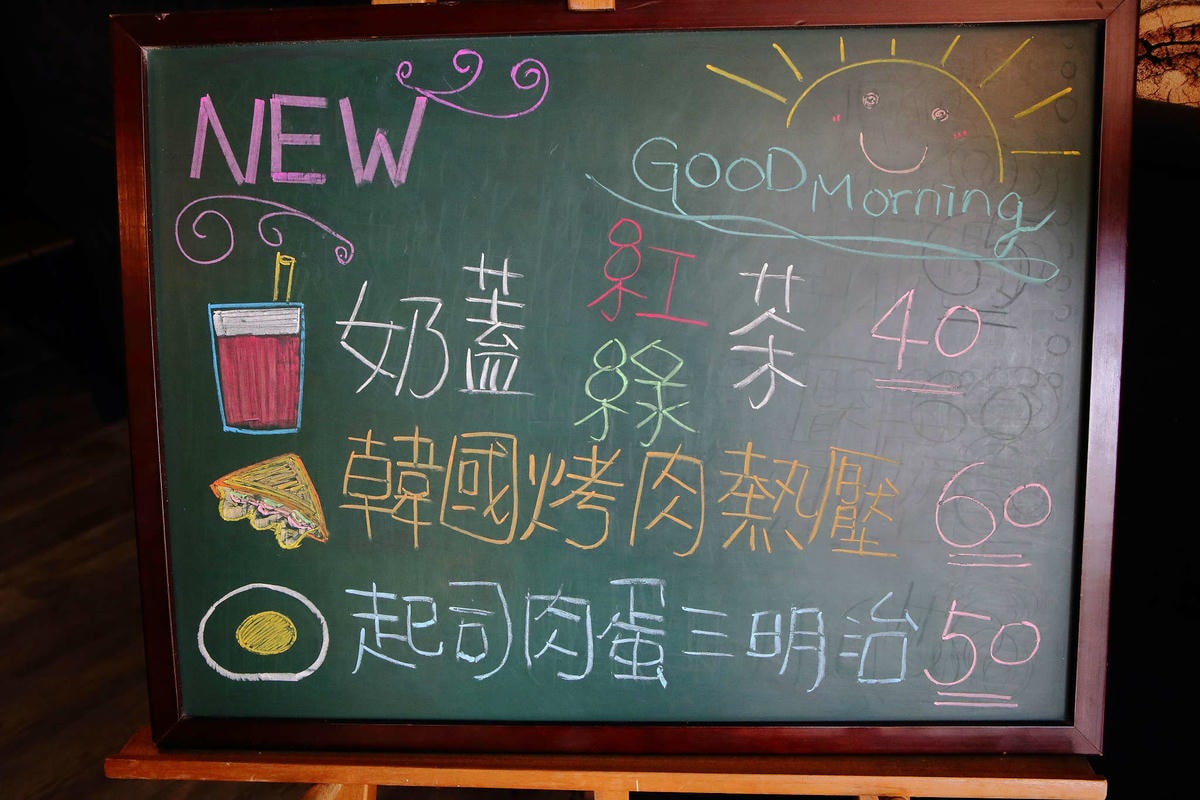 NEW
GOOD Morning
奶蓋 紅 茶 40
綠
韓國烤肉熱壓 60
起司肉蛋三明治 50